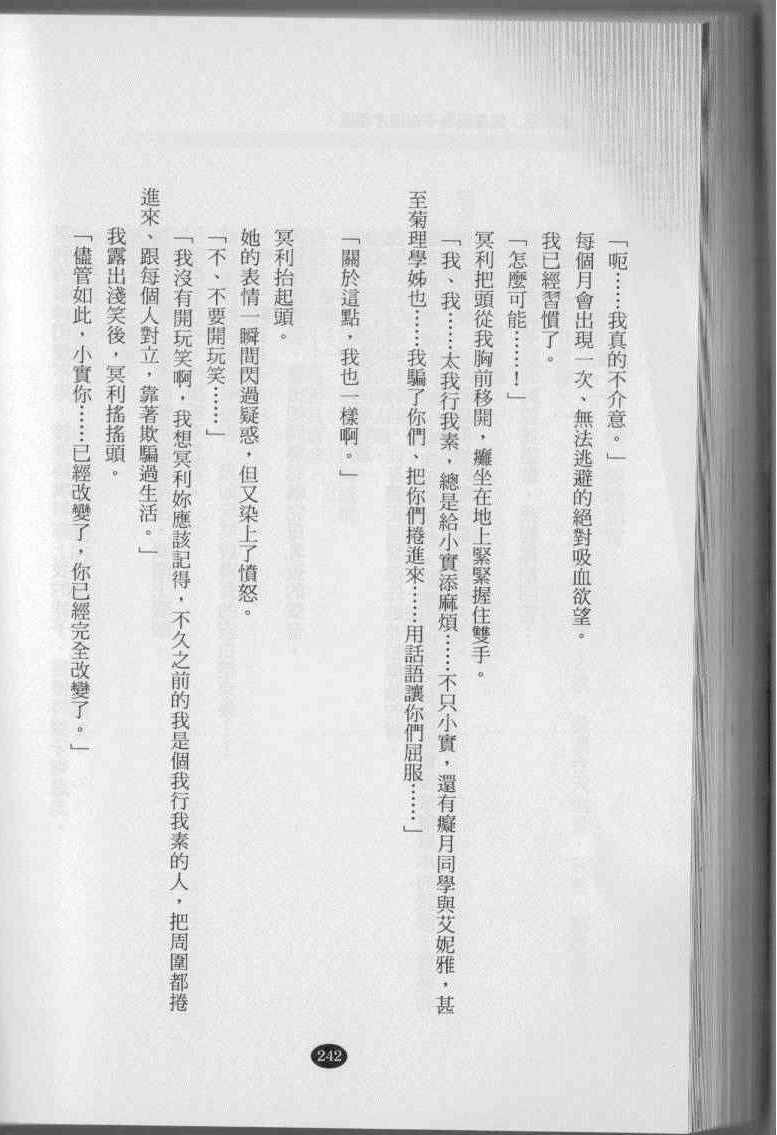 「呃……我真的不介意。」
每個月會出現一次、無法逃避的絕對吸血欲望。
我已經習慣了。
「怎麼可能……！」
冥利把頭從我胸前移開，癱坐在地上緊緊握住雙手。
「我、我……太我行我素，總是給小實添麻煩……不只小實，還有癡月同學與艾妮雅，甚
至菊理學姊也……我騙了你們、把你們捲進來……用話語讓你們屈服……」
「關於這點，我也一樣啊。」
冥利抬起頭。
她的表情一瞬間閃過疑惑，但又染上了憤怒。
「不、不要開玩笑……」
「我沒有開玩笑啊，我想冥利妳應該記得，不久之前的我是個我行我素的人，把周圍都捲
進來、跟每個人對立，靠著欺騙過生活。」
我露出淺笑後，冥利搖搖頭。
「儘管如此，小實你……已經改變了，你已經完全改變了。」
242